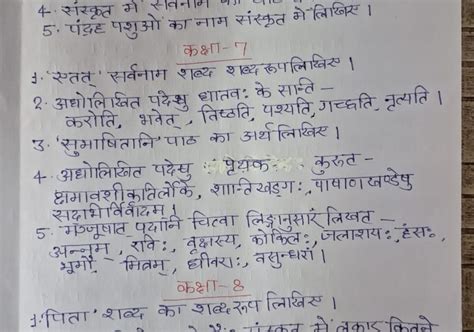 4. संस्कृत में सर्वनाम
5. पंद्रह पशुओं का नाम संस्कृत में लिखिए ।
कक्षा-7
1. 'एतत्' सर्वनाम शब्द शब्दरूप लिखिए ।
2. अधोलिखित पदेषु धातवः के सान्ति -
करोति, भवेत्, तिष्ठति, पश्यति, गच्छति, नृत्यति ।
3. 'सुभाषितानि' पाठ का अर्थ लिखिए ।
4. अधोलिखित पदेषु : पृथक : कुरुत -
क्षमावशीकृतिर्लोके, शान्तिखड्गः, पाषाणखण्डेषु
सदाभिर्विवादम् ।
5. मञ्जूषात् पदानि चित्वा लिङ्गानुसारं लिखत -
अन्नम्, रविः, वृक्षस्य, कोकिलः, जलाशयः, हंसः,
भूमौ, मित्रम्, धीवराः, वसुन्धरा ।
कक्षा-8
1. 'पिता' शब्द का शब्द रूप लिखिए ।
संस्कृत में लकार कितने